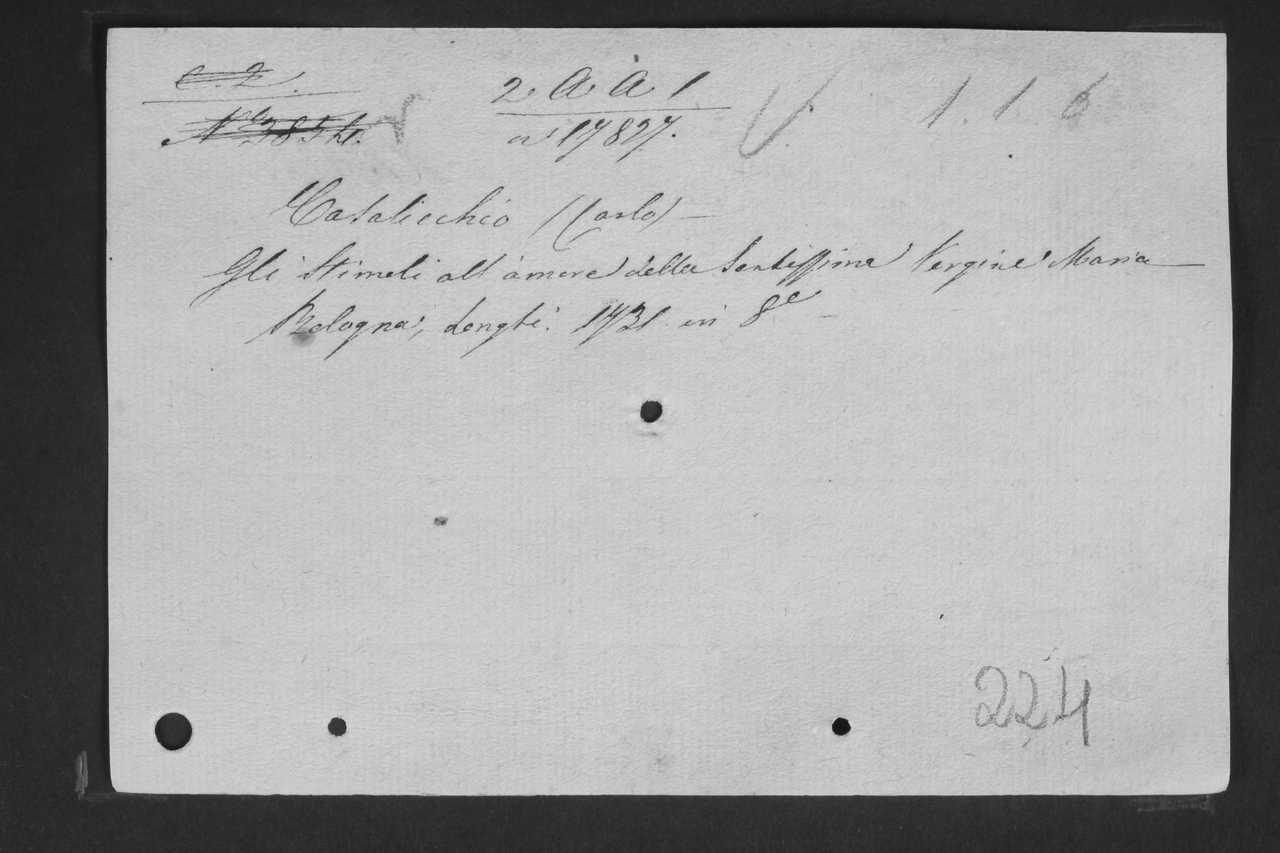 C. 2.
2 A A 1
1. 1. 6
n° 17827.
Casalicchio (Carlo) –
Gli Stimoli all'amore della Santissima Vergine Maria –
Bologna, Longhi. 1731. in 8°
224